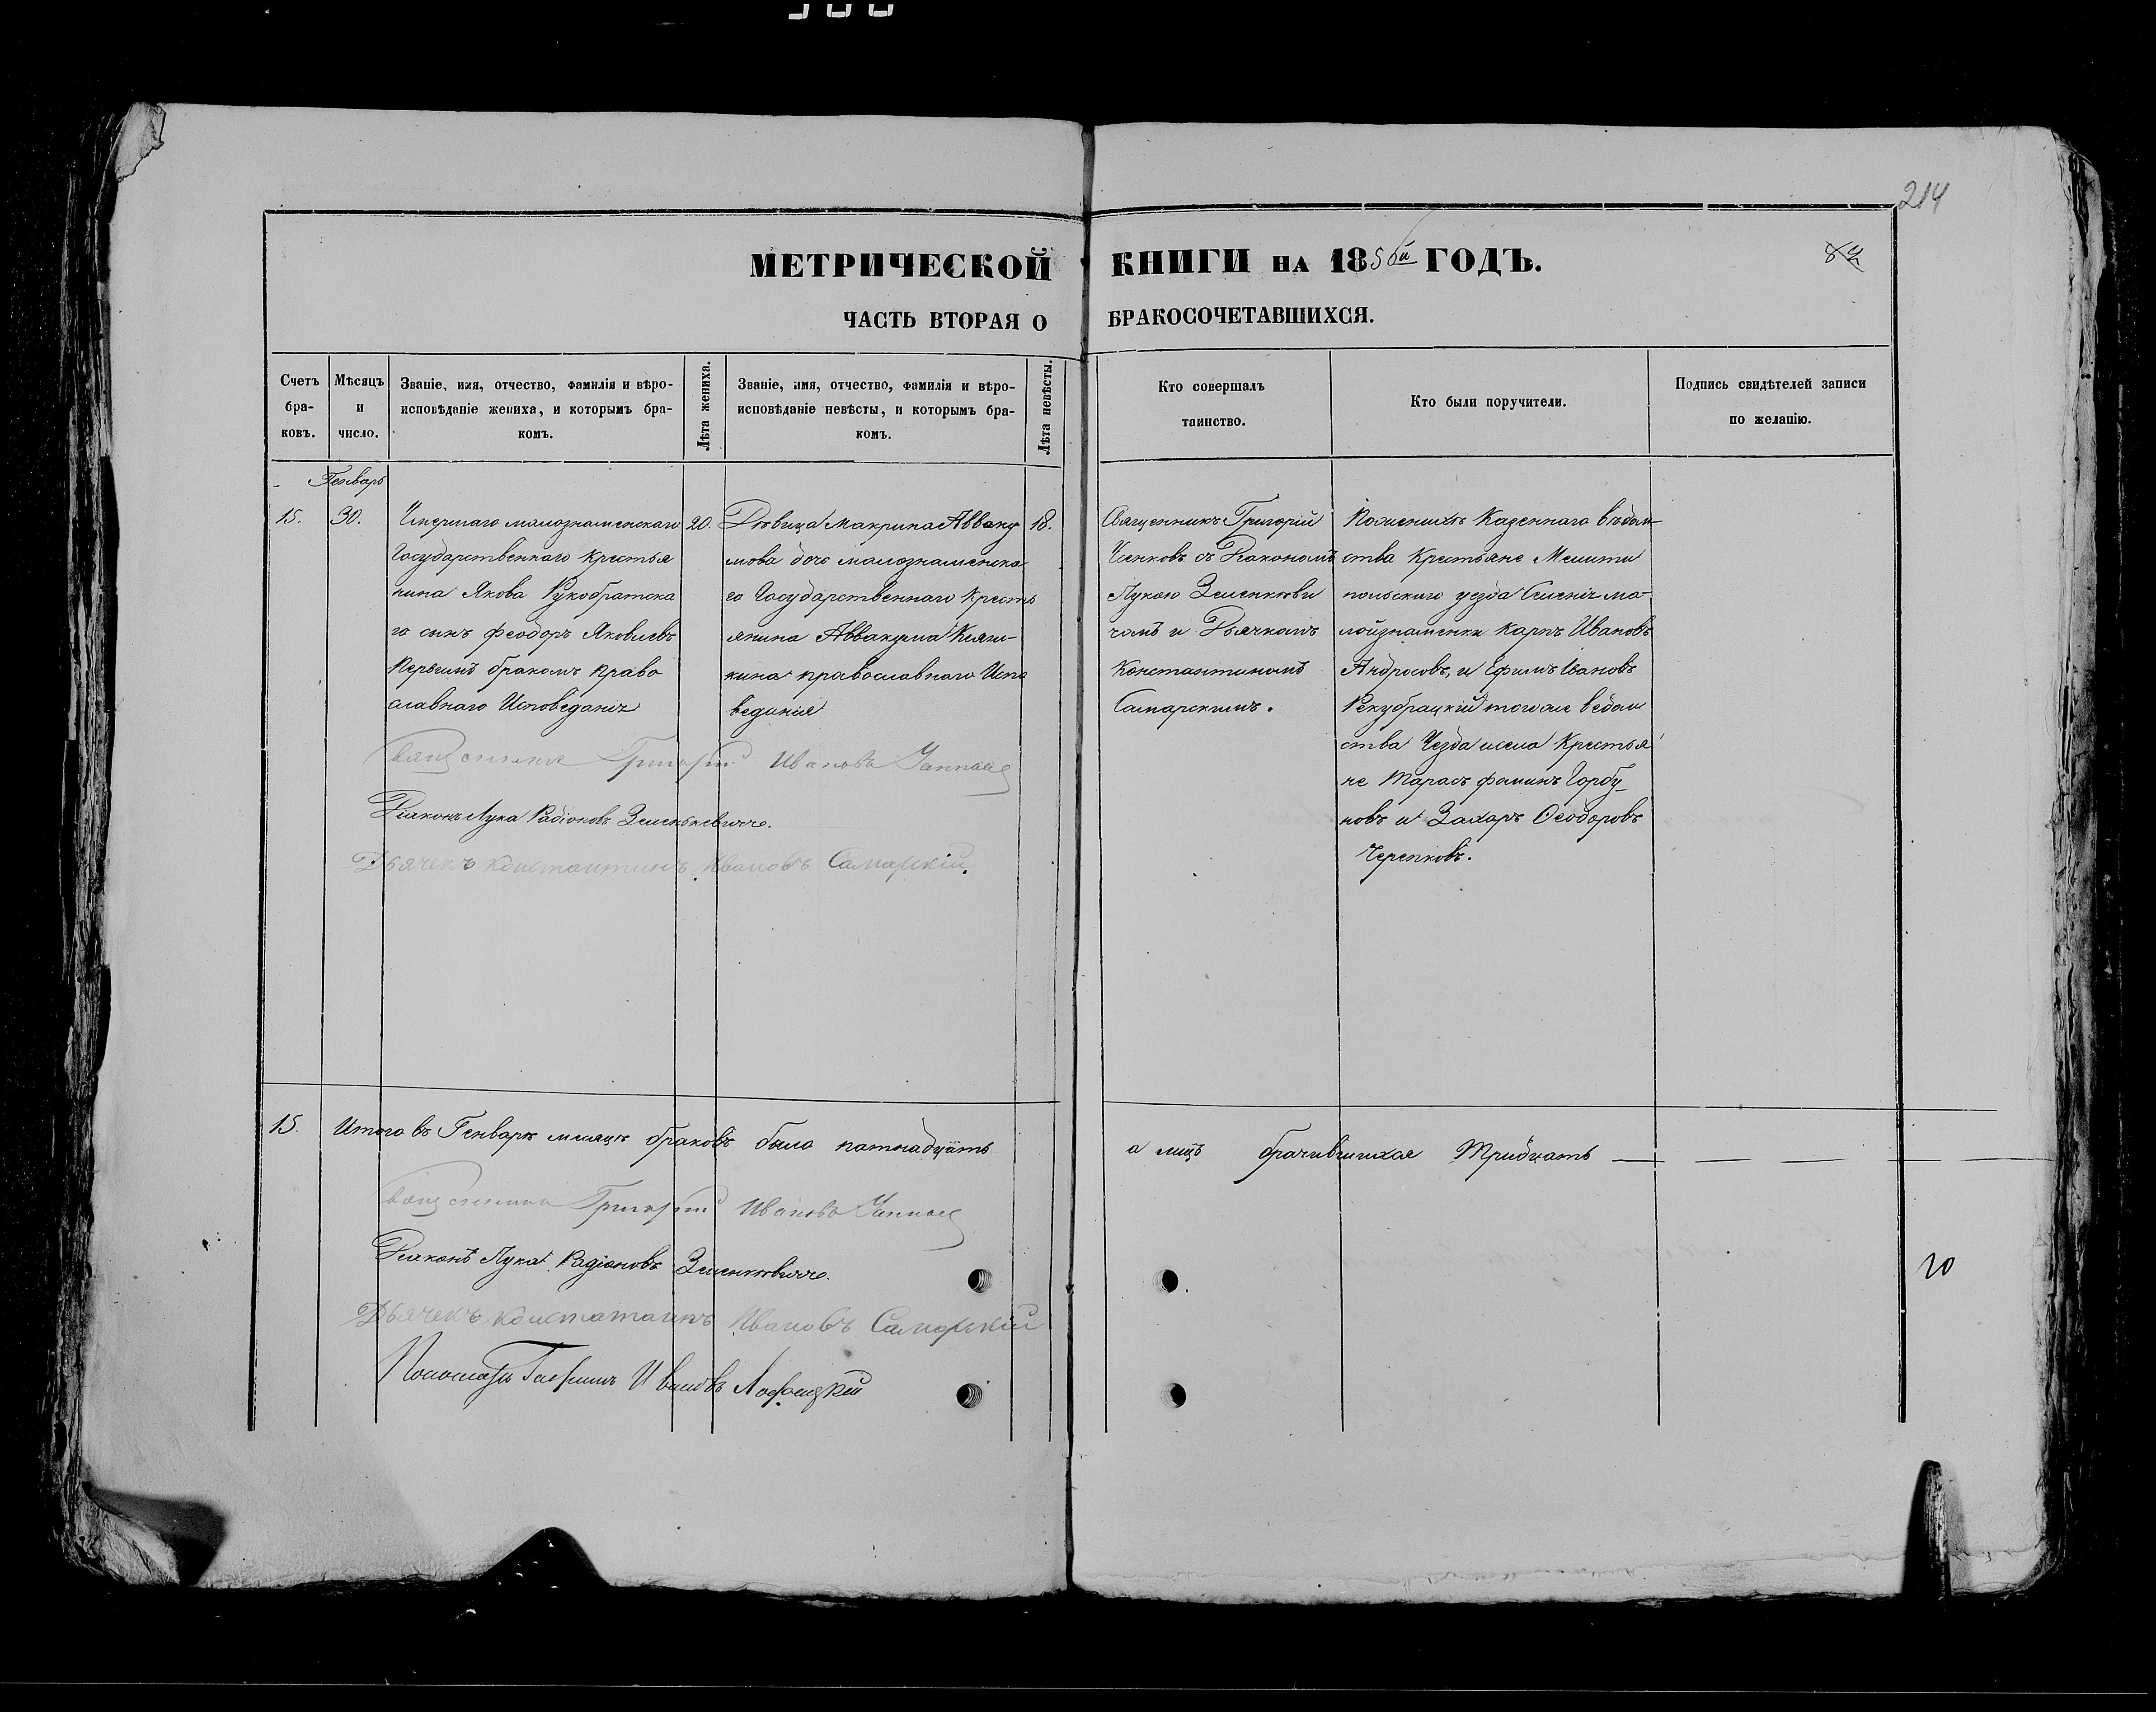 214
МЕТРИЧЕСКОЙ КНИГИ НА 1856й ГОДЪ.
ЧАСТЬ ВТОРАЯ О БРАКОСОЧЕТАВШИХСЯ.
Счетъ бра-ковъ.
Мѣсяцъ и число.
Званіе, имя, отчество, фамилія и вѣро-
исповѣданіе жениха, и которымъ бра-
комъ.
Лѣта жениха.
Званіе, имя, отчество, фамилія и вѣро-
исповѣданіе невѣсты, и которымъ бра-
комъ.
Лѣта невѣсты.
Кто совершалъ
таинство.
Кто были поручители.
Подпись свидѣтелей записи
по желанію.
Генварь
15.
30.
Умершаго малознаменскаго
Государственнаго крестья
нина Якова Рукобратска
го сынъ феодоръ Яковлевъ
Первымъ бракомъ право
славнаго Исповеданія
20.
Дѣвица Макрина Авваку
мова дочь малознаменска
го Государственнаго кресть
янина Аввакума
кина православнаго Испо
веданія
18.
Священникъ Григорій
съ Діакономъ
Лукою Зеленкеви
чемъ и Дьячкомъ
Константиномъ
Самарскимъ.
По женихѣ Казеннаго вѣдом
ства Крестьяне Мелити
польскаго уезда Селенія ма-
лойзнаменки Карпъ Ивановъ
Андросовъ, и Ефимъ Ивановъ
тогоже вѣдом
ства Уезда исела Крестья
не Тарасъ фоминъ Горбу
новъ и Захаръ Феодоровъ
Черепковъ.
Священникъ Григорій Ивановъ
Діаконъ Лука Радіоновъ Зеленкевичъ.
Дьячекъ Константинъ Ивановъ Самарскій.
15. Итого въ Генварѣ месяцѣ браковъ было пятнадцать а лицъ брачившихся Тридцать
Священникъ Григорій Ивановъ
Діаконъ Лука Радіоновъ Зеленкевичъ.
Дьячекъ Константинъ Ивановъ Самарскій
Пономарь Ивановъ
10